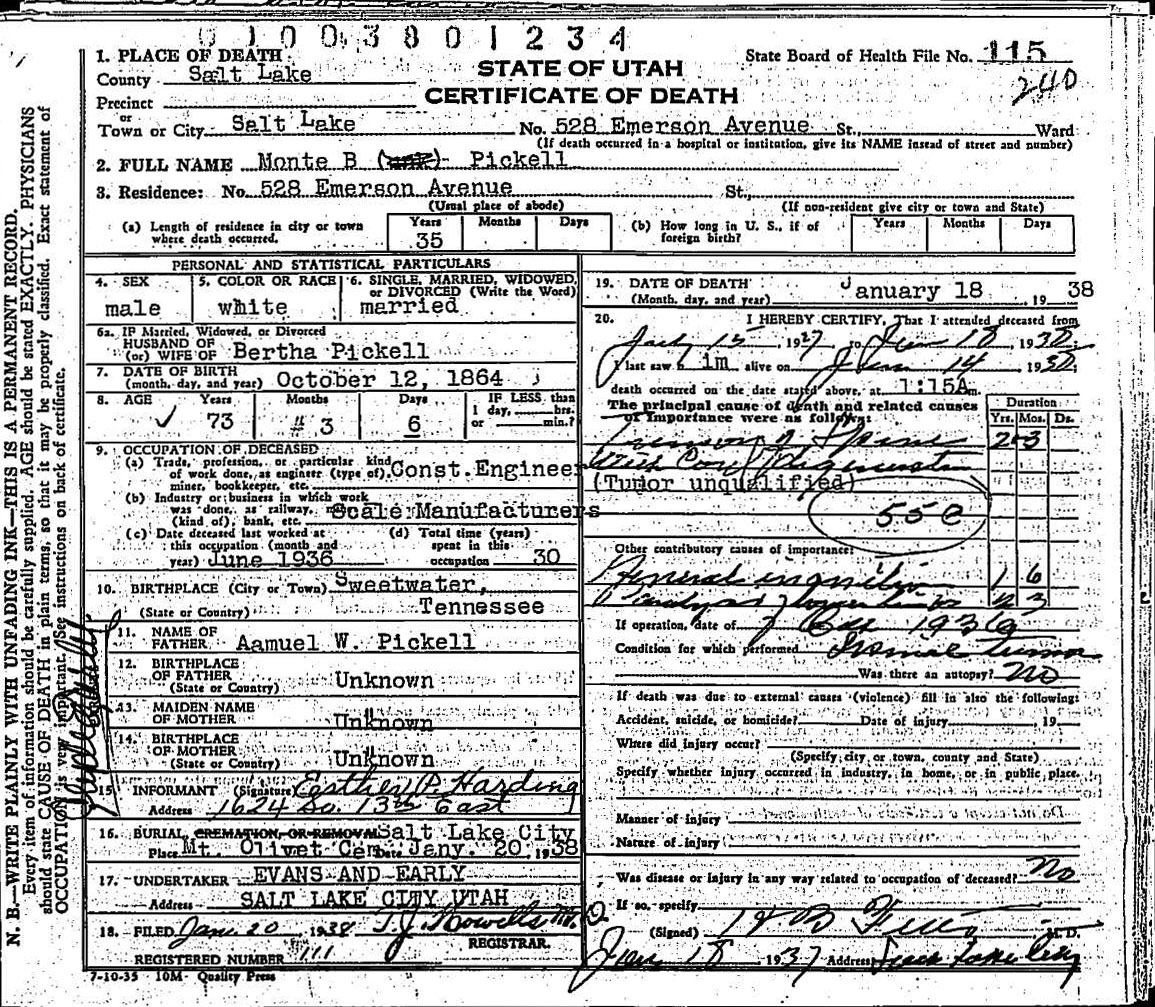 0100380 1234
1. PLACE OF DEATH
State Board of Health File No. 115
County Salt Lake
STATE OF UTAH
240
CERTIFICATE OF DEATH
Precinct
or
Town or City Salt Lake No. 528 Emerson Avenue St., Ward
(If death occurred in a hospital or institution, give its NAME instead of street and number)
2. FULL NAME Monte B Pickell
3. Residence: No. 528 Emerson Avenue St.,
(Usual place of abode) (If non-resident give city or town and State)
(a) Length of residence in city or town where death occurred. Years 35 Months Days
(b) How long in U. S., if of foreign birth? Years Months Days
PERSONAL AND STATISTICAL PARTICULARS
4. SEX male
5. COLOR OR RACE white
6. SINGLE, MARRIED, WIDOWED, or DIVORCED (Write the Word) married
6a. IF Married, Widowed, or Divorced
HUSBAND OF
(or) WIFE OF Bertha Pickell
7. DATE OF BIRTH
(month, day, and year) October 12, 1864
8. AGE Years 73 Months 3 Days 6
IF LESS than 1 day, hrs. or min.?
9. OCCUPATION OF DECEASED
(a) Trade, profession, or particular kind
of work done, as engineer (type of) Const. Engineer
miner, bookkeeper, etc.
(b) Industry or business in which work
was done, as railway, Scale Manufacturers
(kind of), bank, etc.
(c) Date deceased last worked at
this occupation (month and
year) June 1936
(d) Total time (years)
spent in this
occupation 30
10. BIRTHPLACE (City or Town) Sweetwater,
(State or Country) Tennessee
11. NAME OF
FATHER Aamuel W. Pickell
12. BIRTHPLACE
OF FATHER
(State or Country) Unknown
13. MAIDEN NAME
OF MOTHER Unknown
14. BIRTHPLACE
OF MOTHER
(State or Country) Unknown
15. INFORMANT (Signature) Esther P. Harding
Address 1624 So. 13th East
16. BURIAL, CREMATION, OR REMOVAL Salt Lake City
Place Mt. Olivet Cem Date Jany. 20, 1938
17. UNDERTAKER EVANS AND EARLY
Address SALT LAKE CITY UTAH
18. FILED Jan. 20 1938 T.J. Howells M.D.
REGISTRAR.
REGISTERED NUMBER 111
7-10-35 10M- Quality Press
19. DATE OF DEATH
(Month, day, and year) January 18, 1938
20. I HEREBY CERTIFY, That I attended deceased from
15, 1937 to Jan 18, 1938
I last saw him alive on Jan 14 1938;
death occurred on the date stated above, at 1:15A m.
The principal cause of death and related causes
of importance were as follows:
Duration
Yrs. Mos. Ds.
Tumor of Spine 2 3
With Cord Degeneration
(Tumor unqualified)
55e
Other contributory causes of importance:
General inanition 1 6
Paralysis of lower limbs 3
If operation, date of 1936
Condition for which performed tumor
Was there an autopsy? No
If death was due to external causes (violence) fill in also the following:
Accident, suicide, or homicide? Date of injury 19
Where did injury occur?
(Specify city or town, county and State)
Specify whether injury occurred in industry, in home, or in public place.
Manner of injury
Nature of injury
Was disease or injury in any way related to occupation of deceased? No
If so, specify
(Signed) M. D.
Jan 18 1937 Address Salt Lake City
N. B.—WRITE PLAINLY WITH UNFADING INK—THIS IS A PERMANENT RECORD.
Every item of information should be carefully supplied. AGE should be stated EXACTLY. PHYSICIANS
should state CAUSE OF DEATH in plain terms, so that it may be properly classified. Exact statement of
OCCUPATION is very important. See instructions on back of certificate.